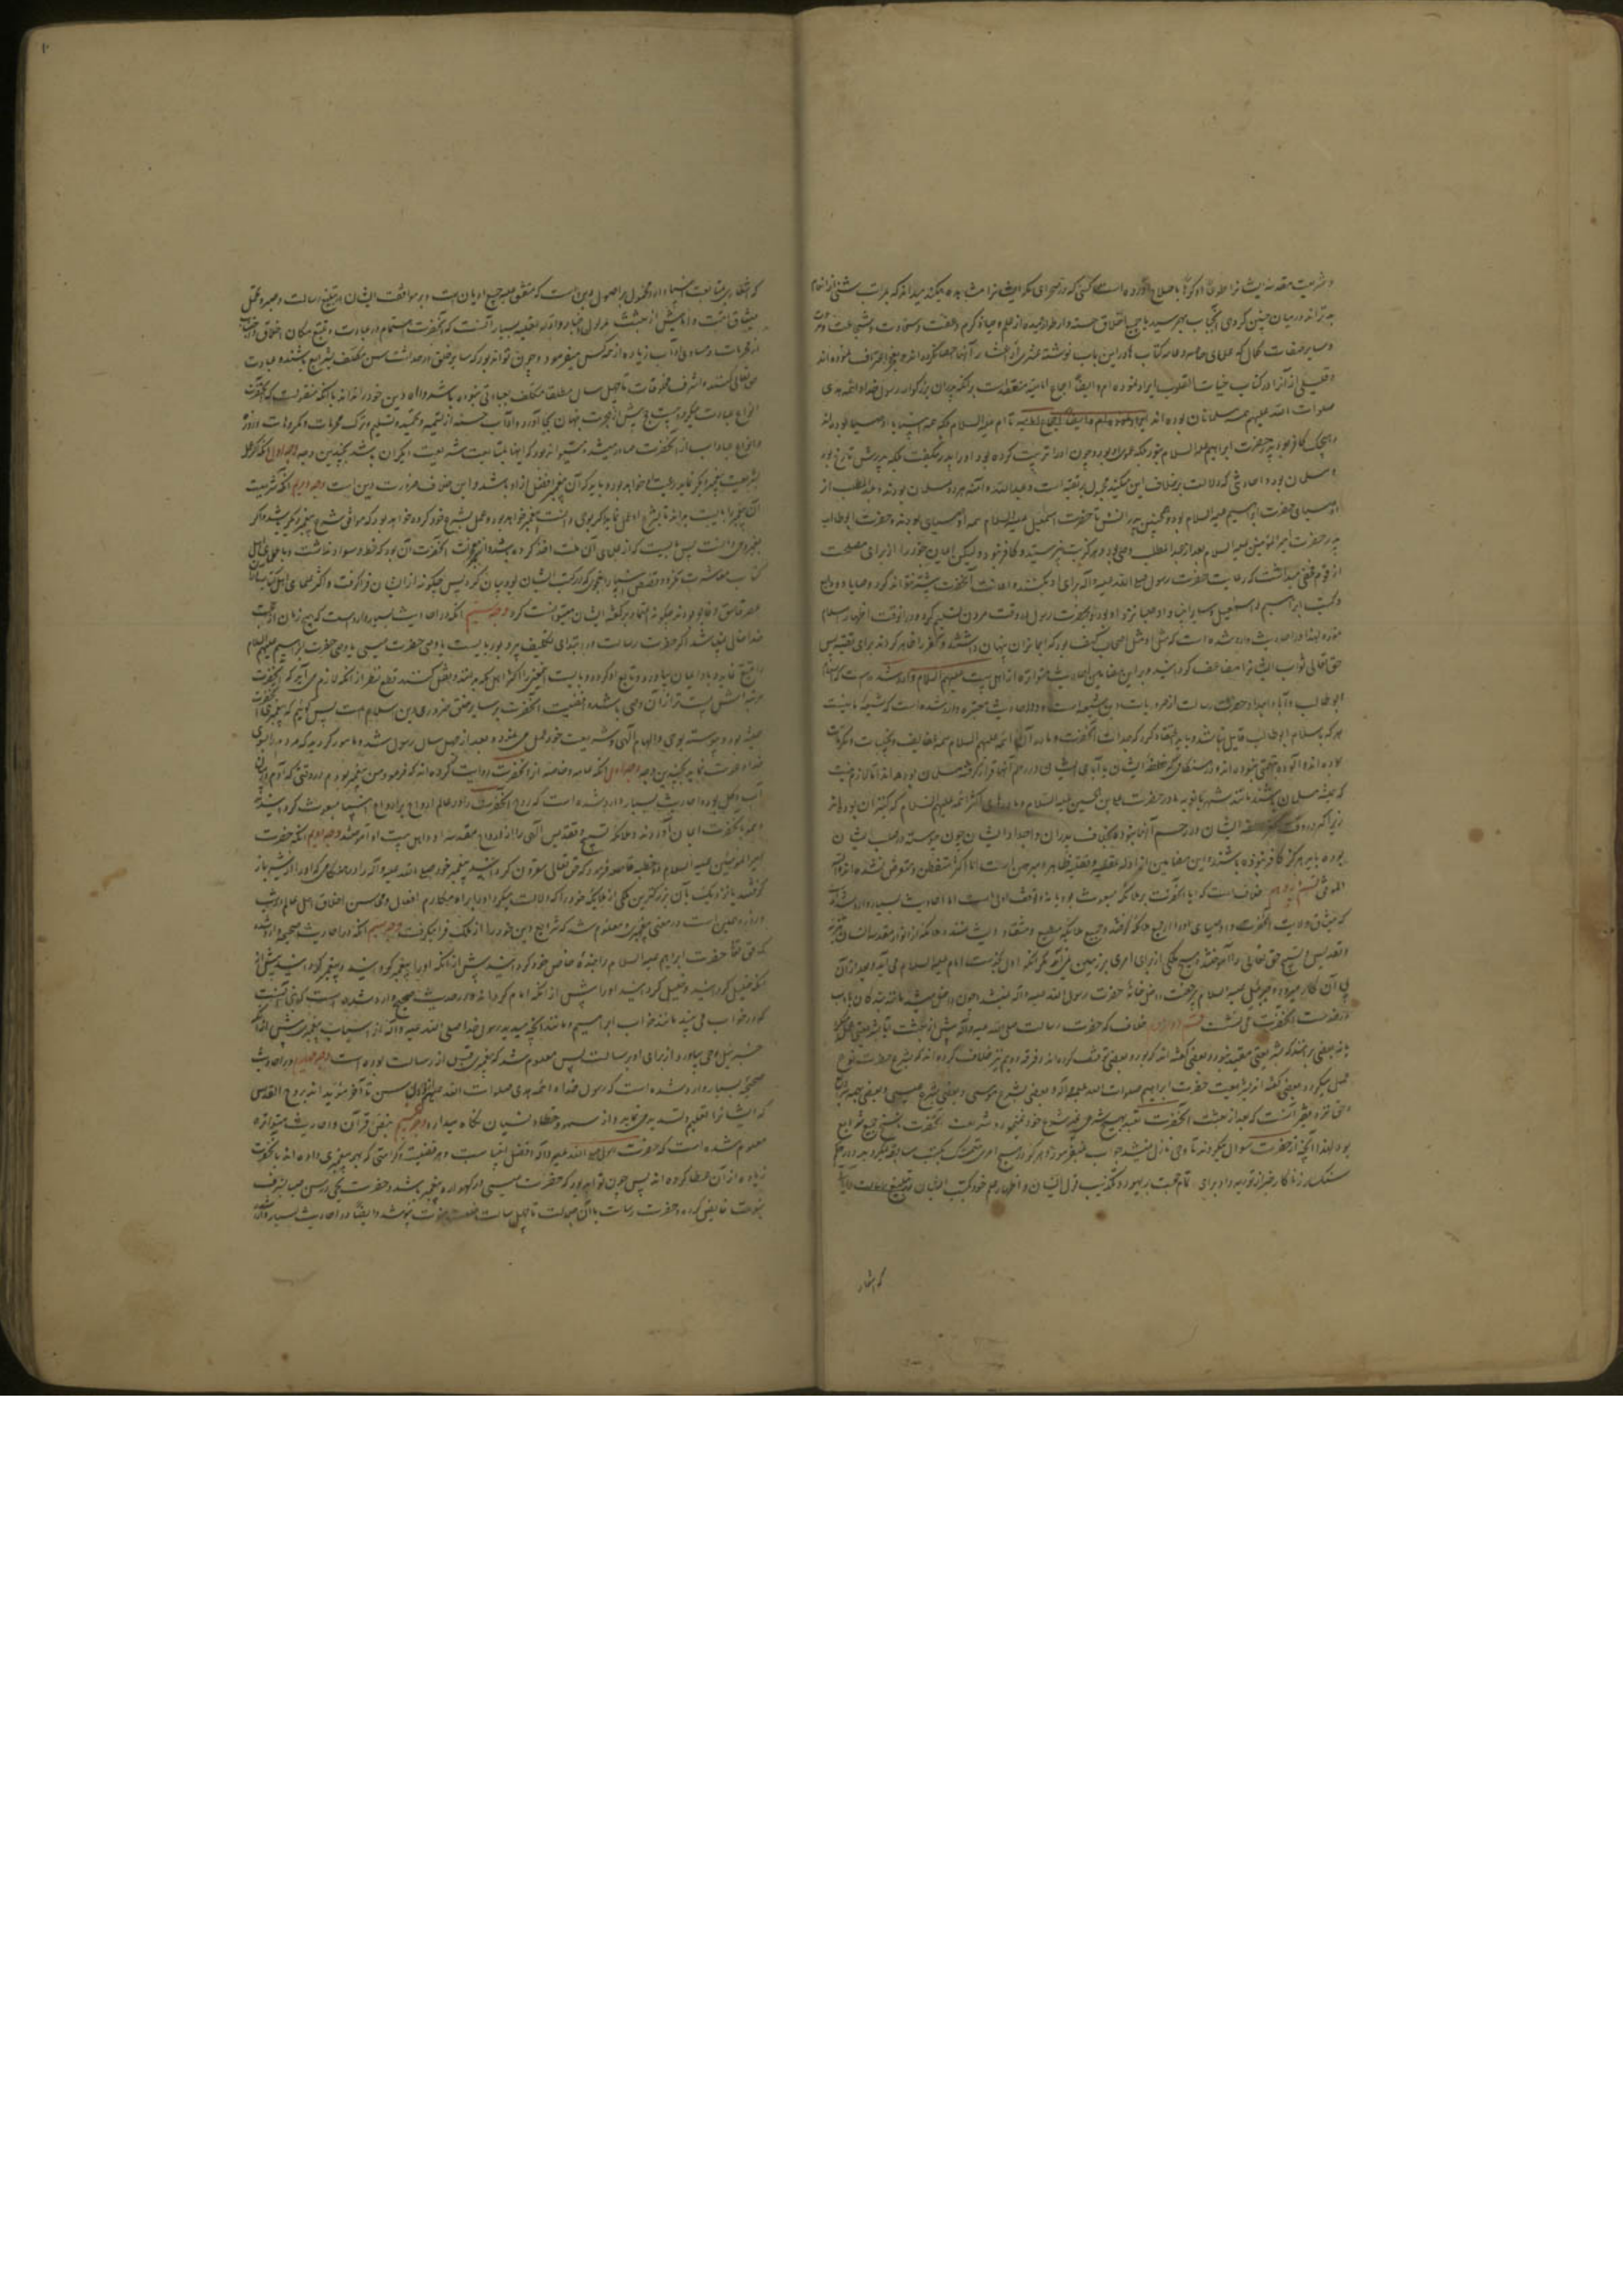 و شریعت مقدسه ایشانرا طوعا و کرها باصلاح آورده است
به ترانه در میان چنین گروهی آنجناب بهم رسید با جمیع اخلاق حسنه و اطوار حمیده از علم و حیا و کرم و عفت و سخاوت و شجاعت و مروت
و سایر صفات کمال که علمای خاصه و عامه کتاب ها در این باب نوشته عشری از اعشار آنرا احصا نکرده اند و بعجز اعتراف نموده اند
و قلیلی از آنرا در کتاب حیات القلوب ایراد نموده ام و ایضا اجماع امامیه منعقد است بر آنکه پدران بزرگوار رسول خدا و ائمه هدی
صلوات الله علیهم همه مسلمانان بوده اند تا آدم علیه السلام بلکه همه پیغمبران یا اوصیا بوده اند
و هیچیک کافر نبود و پدر حضرت ابراهیم علیه السلام نبود بلکه عم او بود و چون او را تربیت کرده بود او را پدر میگفت بلکه پدرش تارخ بود
و مسلمان بود و احادیثی که دلالت بر خلاف این میکند محمول بر تقیه است و عبدالله و آمنه هر دو مسلمان بودند و عبدالمطلب از
اوصیای حضرت ابراهیم علیه السلام بود و همچنین پدرانش تا حضرت اسمعیل علیه السلام همه اوصیای بودند و حضرت ابوطالب
پدر حضرت امیر المؤمنین علیه السلام بعد از عبدالمطلب وصی بود و هرگز بت نپرستید و کافر نبود ولیکن ایمان خود را از برای مصلحت
از قوم مخفی میداشت که رعایت حضرت رسول صلی الله علیه و آله برای او بکنند و اعانت آنحضرت بیشتر تواند کرد و وصایا و ودایع
و کتب ابراهیم و اسمعیل و سایر انبیا و اوصیا نزد او بود و بحضرت رسول در وقت مردن تسلیم کرد و در آنوقت اظهار اسلام
نمود لهذا در احادیث وارد شده است که مثل او مثل اصحاب کهف بود که ایمانرا پنهان داشتند و کفر را ظاهر کردند برای تقیه پس
حق تعالی ثواب ایشانرا مضاعف گردانید و بر این مضامین احادیث متواتره از اهل بیت علیهم السلام وارد شده است که اسلام
ابوطالب و آباء و اجداد حضرت رسالت از ضروریات دین شیعه است و در احادیث معتبره وارد شده است که شیعه ما نیست
هر که باسلام ابوطالب قایل نباشد و باید اعتقاد کرد که جدات آنحضرت و مادران ائمه علیهم السلام همه عفایف و نجیبات و مکرمات
بوده اند و آلوده بتهمتی نبوده اند و در هنگامی که نطفه ایشان یا آبای ایشان در رحم آنها قرار گرفته مسلمان بوده اند اما لازم نیست
که همیشه مسلمان باشند مانند شهربانویه مادر حضرت علی بن الحسین علیه السلام و مادرهای اکثر ائمه علیهم السلام که کنیزان بوده اند
زیرا که در وقت نطفه ایشان در رحم آنها نبوده بخلاف پدران و اجداد ایشان چون پیوسته در صلب ایشان
بوده باید هرگز کافر نبوده باشند و این مضامین از ادله عقلیه و نقلیه ظاهر و مبرهن است اما اکثر متفطن و متعرض نشده اند والله
الموفق خلاف است که آیا آنحضرت بر ملائکه مبعوث بود یا نه و توقف اولی است اما احادیث بسیار وارد شده است
که میثاق ولایت آنحضرت و اوصیای او را از جمیع ملائکه گرفتند و جمیع ملائکه مطیع و منقاد ایشانند و ملائکه از انوار مقدسه ایشان تنزیه
و تقدیس و تسبیح حق تعالی را آموختند و هیچ ملکی از برای امری بر زمین نمی آید مگر آنکه اول بخدمت امام علیه السلام می آید و بعد از آن
پی آن کار میرود و جبرئیل علیه السلام بی رخصت داخل خانه حضرت رسول الله علیه و آله نمیشد و چون داخل میشد مانند بندگان با ادب
در خدمت آنحضرت می نشست خلاف که حضرت رسالت صلی الله علیه و آله پیش از بعثت آیا بشریعتی عمل میکرد
یا نه بعضی برآنند که بشریعتی مقید نبود و بعضی گفته اند که بود و بعضی توقف کرده اند و فرقه دویم نیز خلاف کرده اند که بشرع حضرت نوح
عمل میکرد و بعضی گفته اند بشریعت حضرت ابراهیم صلوات الله علیه و آله و بعضی بشرع موسی و بعضی بشرع عیسی و بعضی بهمه شرایع
و حق نزد فقیر آنست که بعد از بعثت آنحضرت متعبد بهیچ شرعی غیر شرع خود نبود و شریعت آنحضرت ناسخ جمیع شرایع
بود لهذا آنچه از حضرت سؤال میکردند تا وحی نازل نمیشد جواب نمیفرمود و هرگز در هیچ امری تمسک بکتب سابقه نمیکرد و در حکم
سنگسار زناکار خبر از توریه داد برای اتمام حجت بر یهود و تکذیب قول ایشان و اظهار علم خود بکتب ایشان
که اشعار
که اشعار بمتابعت انبیا دارد محمول بر اصول دین است که متفق علیه جمیع ادیان است و بر موافقت ایشان در تبلیغ رسالت و صبر و تحمل
مشاق است و اما پیش از بعثت مدلول اخبار و ادله عقلیه بسیار آنست که آنحضرت اهتمام در عبادت و تتبع مکارم اخلاق و اجتناب
از محرمات و مساوی آداب زیاده از همه کس میفرمود و چون تواند بود که سایر خلق در حداثت سن مکلف بشرایع باشند و عبادت
حق تعالی کنند و اشرف مخلوقات تا چهل سال مطلقا مکلف بعبادتی نبوده باشد و راه دین خود را نداند با آنکه منقولست که آنحضرت
انواع عبادت میکرد و بیست حج پیش از هجرت پنهان بجا آورد و آداب حسنه از تسمیه و تحمید و تسلیم و ترک محرمات و مکروهات و روزه
و انواع عبادات از آنحضرت صادر میشد و نمیتواند بود که اینها بمتابعت شریعت دیگران باشد بچندین وجه وجه اول آنکه اگر عمل
بشریعت پیغمبر دیگر نماید رعیت او خواهد بود و باید که آن پیغمبر افضل از او باشد و این خلاف ضرورت دین است وجه دویم آنکه شریعت
آن پیغمبر را بایست بداند تا بشرع او عمل نماید اگر بوحی دانست پیغمبر خواهد بود و عمل بشرع خود کرده خواهد بود که موافق شرع پیغمبر دیگر باشد و اگر
بغیر وحی دانست پس بایست که از علمای آن ملت اخذ کرده باشد و از معجزات آنحضرت آن بود که خط و سواد نداشت و با علمای اهل
کتاب معاشرت نکرد و قصص انبیا را بنحوی که در کتب ایشان بود بیان کرد پس چگونه از ایشان فرا گرفت و اکثر علمای اهل کتاب در آن
عصر فاسق و فاجر بودند چگونه اعتماد بر گفته ایشان میتوانست کرد وجه سیم آنکه در احادیث بسیار وارد است که هیچ زمان از حجت
خدا خالی نمیباشد اگر حضرت رسالت در ابتدای تکلیف پیرو بود بایست با وصی حضرت عیسی یا وصی حضرت ابراهیم علیهم السلام
بیعت نماید و باو ایمان بیاورد و تابع او گردد و بایست اینچنین را اکثر اهل مکه بدانند و نقل کنند قطع نظر از آنکه لازم می آید که آنحضرت
مرتبه اش پست تر از آن وصی باشد و افضلیت آنحضرت بر سایر خلق ضروری دین اسلام است پس گوئیم که پیغمبری آنحضرت
همیشه بود و پیوسته بوحی و الهام الهی و شریعت خود عمل می نمود و بعد از چهل سال رسول شد و مامور گردید که مردم را بسوی
خدا دعوت نماید بچندین وجه وجه اول آنکه عامه و خاصه از آنحضرت روایت کرده اند که فرمود من پیغمبر بودم در وقتی که آدم میان
آب و گل بود و احادیث بسیار وارد شده است که روح آنحضرت را در عالم ارواح بر ارواح انبیا مبعوث گردانید
و همه بآنحضرت ایمان آوردند و ملائکه تسبیح و تقدیس الهی را از ارواح مقدسه او و اهل بیت او آموختند وجه دویم آنکه حضرت
امیر المؤمنین علیه السلام در خطبه قاصعه فرمود که حق تعالی مقرون گردانید به پیغمبر خود صلی الله علیه و آله در هنگامی که او را از شیر باز
گرفتند بزرگترین ملکی از ملائکه خود را که دلالت میکرد او را براه مکارم افعال و محاسن اخلاق اهل عالم در شب
و روز و همین است در معنی پیغمبری و معلوم شد که شرایع دین خود را از ملک فرا میگرفت وجه سیم آنکه در احادیث صحیحه وارد شده
که حق تعالی حضرت ابراهیم علیه السلام را بنده خاص خود گردانید پیش از آنکه او را پیغمبر گرداند و پیغمبر گردانید پیش از
آنکه خلیل گرداند و خلیل گردانید او را پیش از آنکه امام گرداند و در حدیث صحیح وارد شده است که نبی آنست
که در خواب می بیند مانند خواب ابراهیم و مانند آنچه میدید رسول خدا صلی الله علیه و آله از اسباب پیغمبری پیش از آنکه
جبرئیل وحی بیاورد از برای او برسالت پس معلوم شد که پیغمبری قبل از رسالت بوده است وجه چهارم در احادیث
صحیحه بسیار وارد شده است که رسول خدا و ائمه هدی صلوات الله علیهم از اول سن تا آخر مؤید اند بروح القدس
که ایشانرا تعلیم و تسدید می نماید و از سهو و خطا و نسیان نگاه میدارد وجه پنجم بنص قرآن و احادیث متواتره
معلوم شده است که حضرت رسول صلی الله علیه و آله افضل انبیاست و هر فضیلت و کرامتی که بهر پیغمبری داده اند بآنحضرت
زیاده از آن عطا کرده اند پس چون تواند بود که حضرت عیسی در گهواره پیغمبر باشد و حضرت یحیی در سن صبا بشرف
نبوت فایض گردد و حضرت رسالت با آن جلالت تا چهل سالت خلعت نبوت نپوشد و ایضا در احادیث بسیار وارد شده